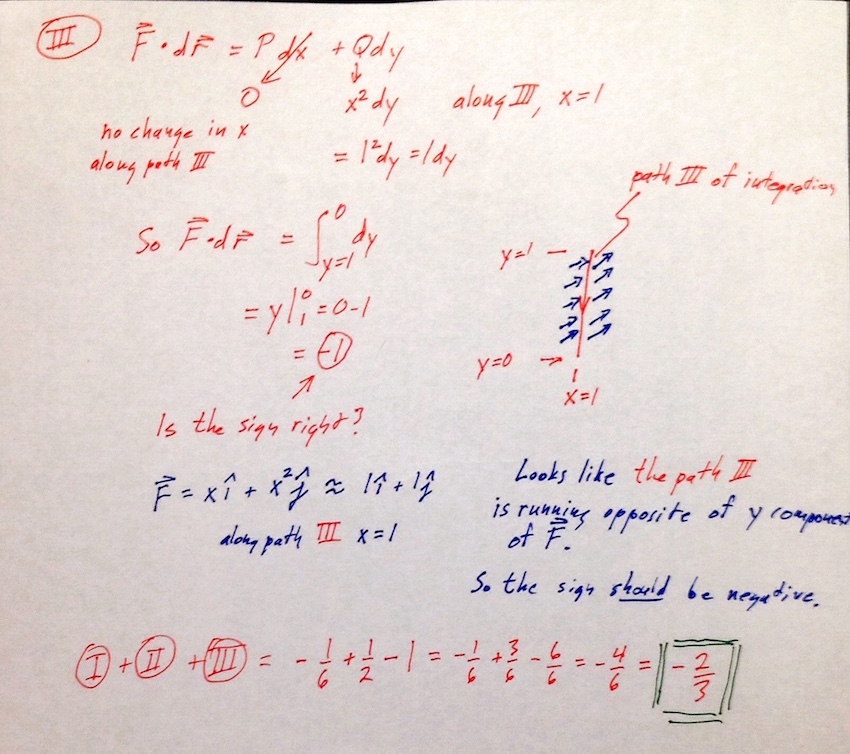 III F⃗ • dr⃗ = P dx + Q dy
0 x² dy along III, x = 1
no change in x
along path III
= 1² dy = 1 dy
path III of integration
So F⃗ • dr⃗ = ∫_{y=1}^{0} dy
y=1 –
= y|₁⁰ = 0 - 1
= -1
y=0 →
x=1
Is the sign right?
F⃗ = x î + x² ĵ ≈ 1 î + 1 ĵ
along path III x = 1
Looks like the path III
is running opposite of y component
of F⃗.
So the sign should be negative.
I + II + III = - 1/6 + 1/2 - 1 = - 1/6 + 3/6 - 6/6 = - 4/6 = - 2/3